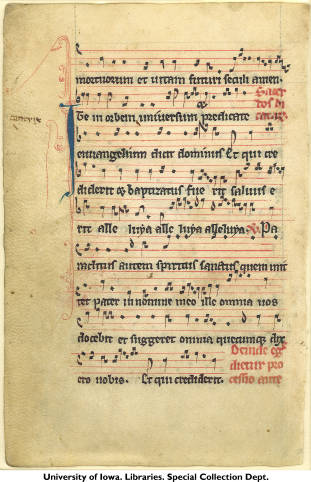 mortuorum et vitam futuri seculi amen.
Sacer
dos di
cat
te in orbem universum predicate
evvangelium dicit dominus Et qui cre
diderit et baptizatus fue rit salvus e
rit alle luya alle luya alleluya. Pa
raclitus autem spiritus sanctus quem mit
tet pater in nomine meo ille omnia vos
docebit et suggeret omnia quecumque dix
Deinde
dicitur pro
cessio ante
ero vobis. Et qui crediderit.
University of Iowa. Libraries. Special Collection Dept.